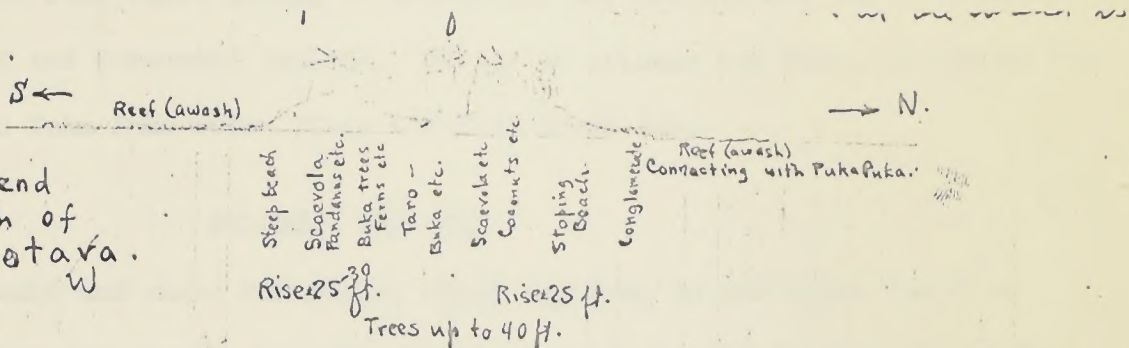 S ←
Reef (awash)
→ N.
Reef (awash)
Connecting with PukaPuka.
Steep beach
Scaevola
Pandanus etc.
Buka trees
Ferns etc
Taro -
Buka etc.
Scaevola etc
Coconuts etc
Stoping
Beach.
Conglomerate
end
of
otava.
W
Rise±25-30 ft.
Rise±25 ft.
Trees up to 40 ft.